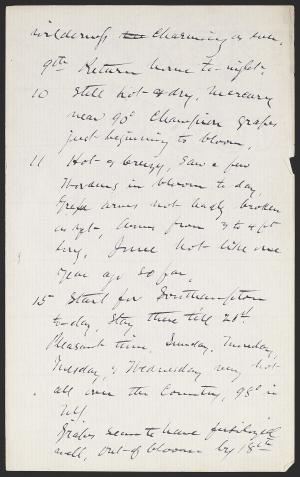 charming as ever.
9th Return home to-night.
10 Still hot & dry, mercury
near 90° Champion grapes
just beginning to bloom.
11 Hot & breezy, saw a few
Wordens in bloom to day.
Grape arms not badly broken
as yet, arms from 3 to 4 ft
long, June hot like one
year ago so far.
15 Start for Southampton
to-day, stay there till 21st
Pleasant time, Sunday, Monday,
Tuesday, & Wednesday very hot
all over the Country, 98° in
N.Y.
Grapes seem to have fertilized
well, out-of bloom by 18th